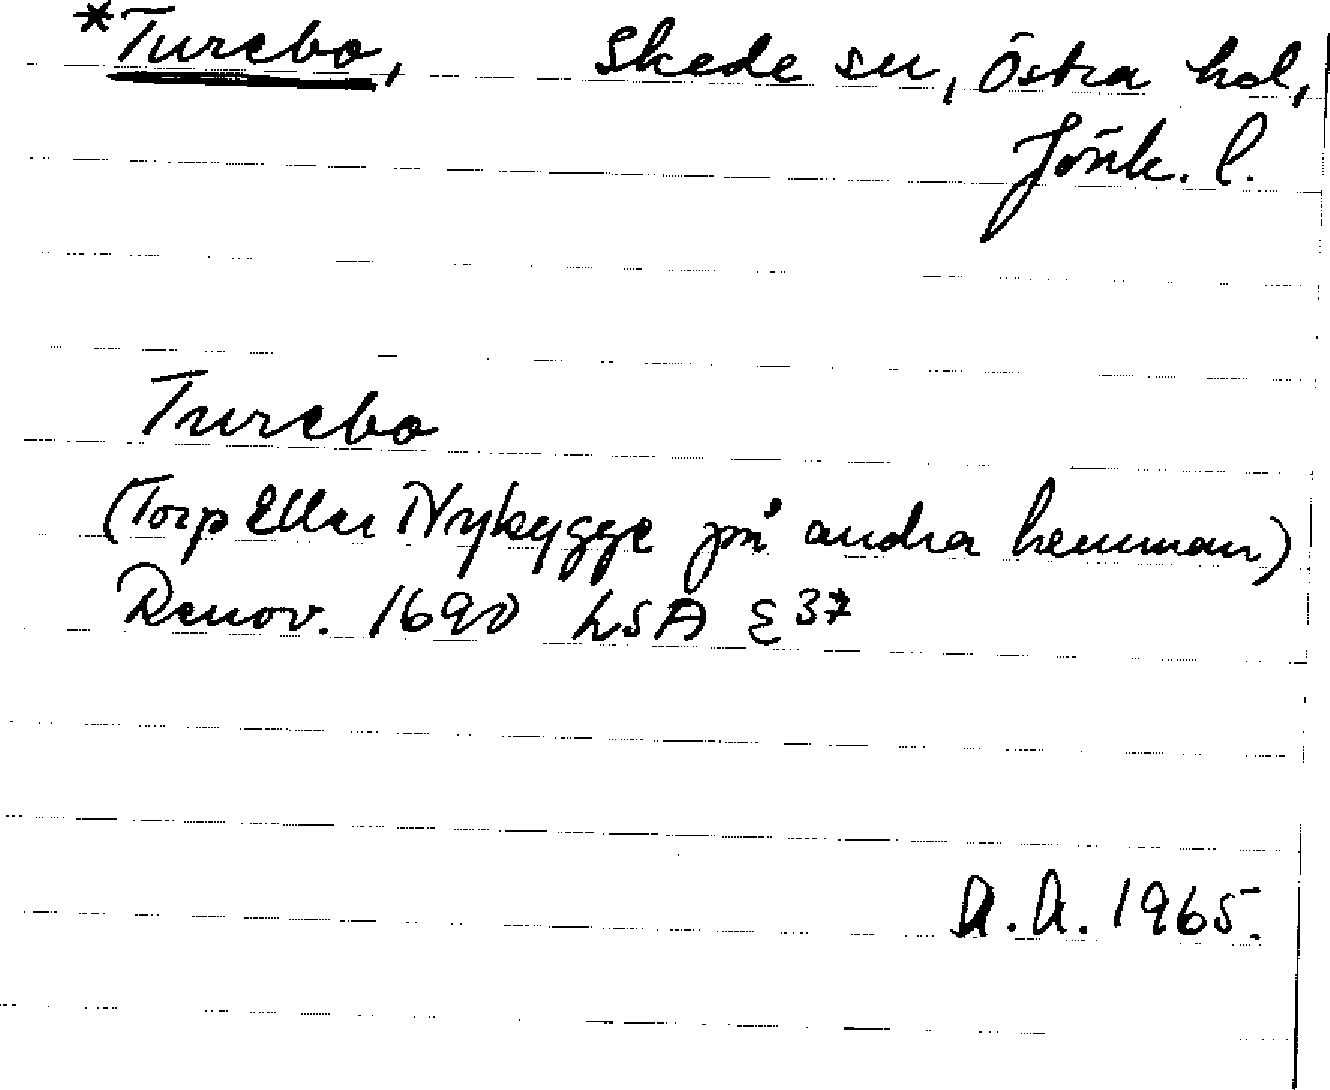 *Turebo, Skede sn, Östra hd,
Jönk. l.
Turebo
(Torp Eller Nybygge på andra hemman)
Renov. 1690 LSA E 37
A.A. 1965.